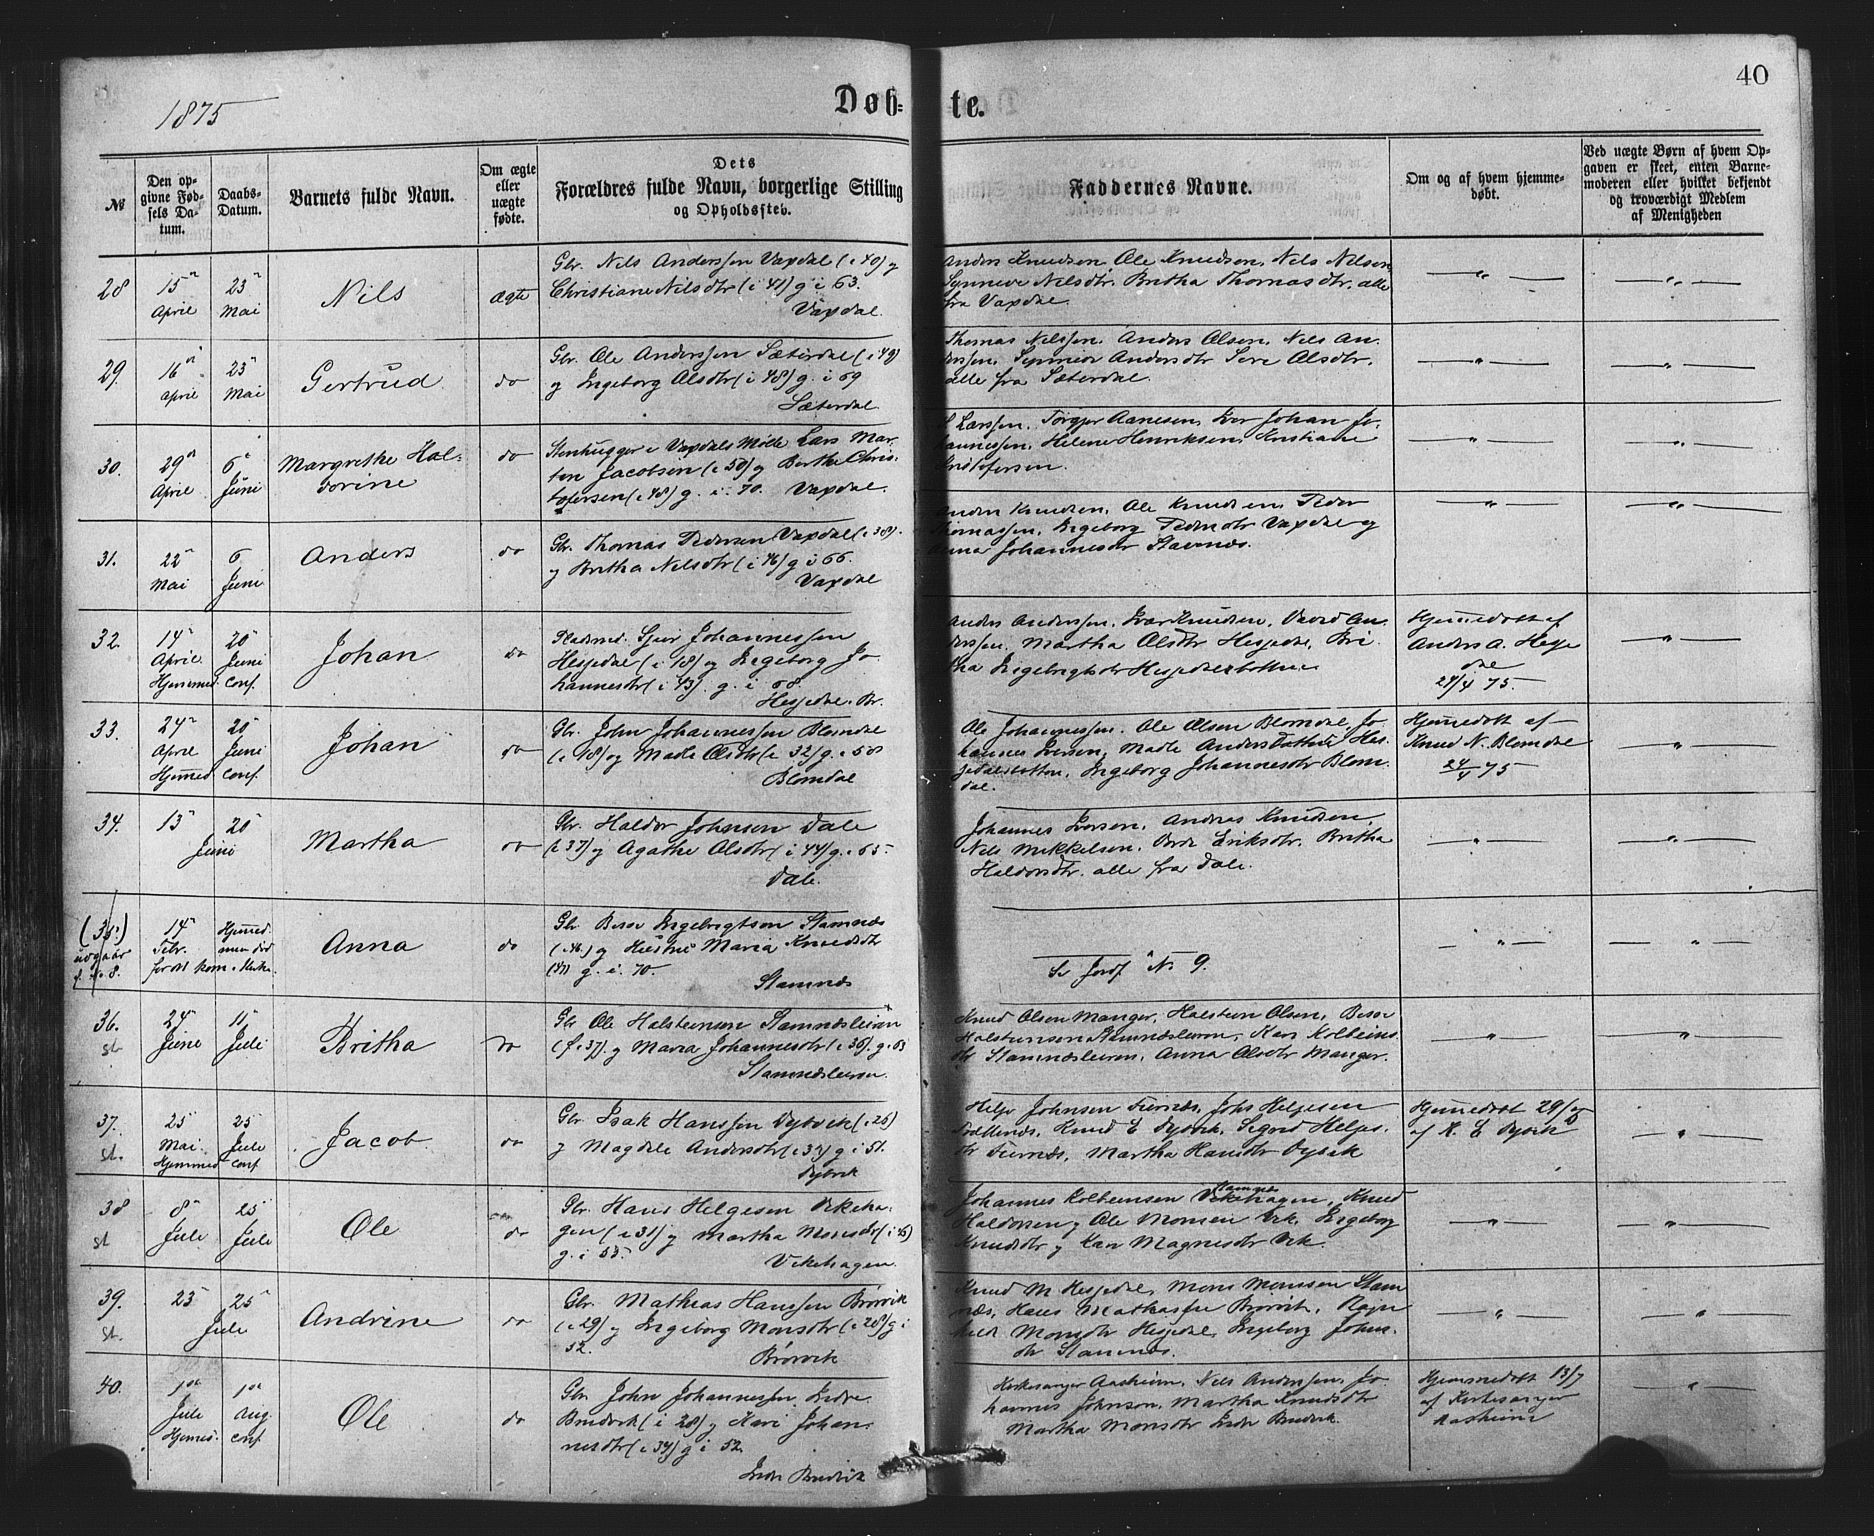 1875
Døb-
te.
40
№
Den op-
givne Fød-
sels Da-
tum.
Daabs-
Datum.
Barnets fulde Navn.
Om ægte
eller
uægte
fødte.
Dets
Forældres fulde Navn, borgerlige Stilling
og Opholdssted.
Faddernes Navne.
Om og af hvem hjemme-
døbt.
Ved uægte Børn af hvem Op-
gaven er skeet, enten Barne-
moderen eller hvilket bekjendt
og troværdigt Medlem
af Menigheden
28
15
April
23
Mai
Nils
ægte
Gbr. Nils Anderssen Vaxdal (i 40) og
Christiane Nilsdtr (i 41) g i 63.
Vaxdal.
Anders Knudsen, Ole Knudsen, Nils Nilsen,
Synneve Nilsdtr. Britha Thomasdtr. alle
fra Vaxdal.
29.
16
April
23
Mai
Gertrud
do
Gbr. Ole Anderssen Sæterdal (i 49)
og Ingeborg Olsdtr (i 48) g. i 69
Sæterdal.
Thomas Nilssen, Anders Olsen, Nils An-
derssen, Synneve Andersdtr Olsdtr.
alle fra Sæterdal.
30.
29
April
6
Juni
Margrethe Hal-
dorine
do
Stenhugger i Vaxdals Mølle Lars Mar-
tin Jacobsen (i 50) og Berthe Chris-
tofersen (i 48) g. i. 70. Vaxdal.
Larssen. Torgjer Aanesen, Iver Johan Jo-
hannessen, Helene Henriksen, Kristiane
Kristofersen
31.
22
Mai
6
Juni
Anders
do
Gbr. Thomas Pedersen Vaxdal (i 38).
og Britha Nilsdtr (i 46) g i 66.
Vaxdal
Anders Knudsen, Ole Knudsen, Peder
Thomassen, Ingeborg Pedersdtr Vaxdal og
Anna Johannesdtr Stamnæs.
32.
14
April
Hjemmed
20
Juni
Conf.
Johan
do
Pladsmd. Sjur Johannessen
Hesjedal (i 48) og Ingeborg Jo-
hannesdtr (i 43). g. i 68
Hesjedal. Br.
Anders Anderssen, Ivar Knudsen, David An-
derssen, Martha Olsdtr Hesjedal, Bri-
tha Ingebrigtsdtr Hesjedalsbotten
Hjemmedøbt af
Anders A. Hesje
dal
24/4 75.
33.
24
April
Hjemmed
20
Juni
Conf.
Johan
do
Gbr. John Johannessen Blomdal
(i 48) og Madle Olsdtr (i 32) g. i 58
Blomdal
Ole Johannessen. Ole Olsen Blomdal, Jo-
hannes Iversen, Madle Andersdatter Hes-
jedalsbotten, Ingeborg Johannesdtr Blom-
dal.
Hjemmedøbt af
Knud N. Blomdal
24/4 75
34.
13
20
Juni
Martha
do
Gbr. Haldor Johnsen Dale
(i 37) og Agathe Olsdtr (i 44) g. i 65
Dale.
Johannes Iversen, Andreas Knudsen,
Nils Mikkelsen, Eriksdtr. Britha
Haldorsdtr. alle fra Dale.
(35)
udgaar
f. No 8.
14
Febr.
Hjemmed
men død
før det kom i Kirke
Anna
do
Gbr Ingebrigtsen Stamnæs
(i 46.) og Maria Knudsdtr
g. i. 70.
Stamnæs
Se Jordf No 9.
36.
st
24
Juni
11
Juli
Britha
do
Gbr Ole Halsteinsen Stamnæsleiren
(f. i 37). og Maria Johannesdtr (i 36). g. i 63
Stamnæsleiren.
Knud Olsen Manger, Halstein Olsen,
Halsteinsen Stamnæsleiren, Kari Kolbeins-
dtr Stamnæsleiren, Anna Olsdtr Manger.
37.
st.
25
Mai
Hjemmed
25
Juli
Conf
Jacob.
do
Gbr. Isak Hanssen Dybvik (i 26)
og Magdele Andersdtr (i 34) g i 51.
Dybvik
Helje Johnsen Johs Helgesen
Knud E Dybvik, Sigrid Helges-
dtr Martha Hansdtr Dybvik
Hjemmedøbt 29/5
af K. E Dybvik
38
st
8
Juli
25
Juli
Ole
do
Gbr. Hans Helgesen Vikeha-
gen (i 31) og Martha Monsdtr (i 26)
g. i 53.
Vikehagen.
Stamnæs
Johannes Kolbeinsen Vikehagen, Knud
Haldorsen og Ole Monsen Vik. Ingeborg
Knudsdtr og Kari Magnesdtr Vik.
39.
st.
23
25
Juli
Andrine
do
Gbr. Mathias Hanssen Brørvik
(i 29) og Ingeborg Monsdtr (i 28) g i
52.
Brørvik
Knud M Hesjedal, Mons Monssen Stam-
næs, Hans Mathiassen Brørvik, Ragn-
hild Monsdtr Hesjedal, Ingeborg Johns-
dtr Stamnæs.
40.
1
Juli
Hjemd.
1
Aug
Conf.
Ole
do
Gbr John Johannessen Indre
Brudvik (i 28) og Kari Johan-
nesdtr (i 34) g i 52.
Indre Brudvik
Kirkesanger Aasheim, Nils Anderssen, Jo-
hannes Johnsen, Martha Knudsdtr
Martha Monsdtr Indre Brudvik.
Hjemmedøbt 13/7
af Kirkesanger
Aasheim